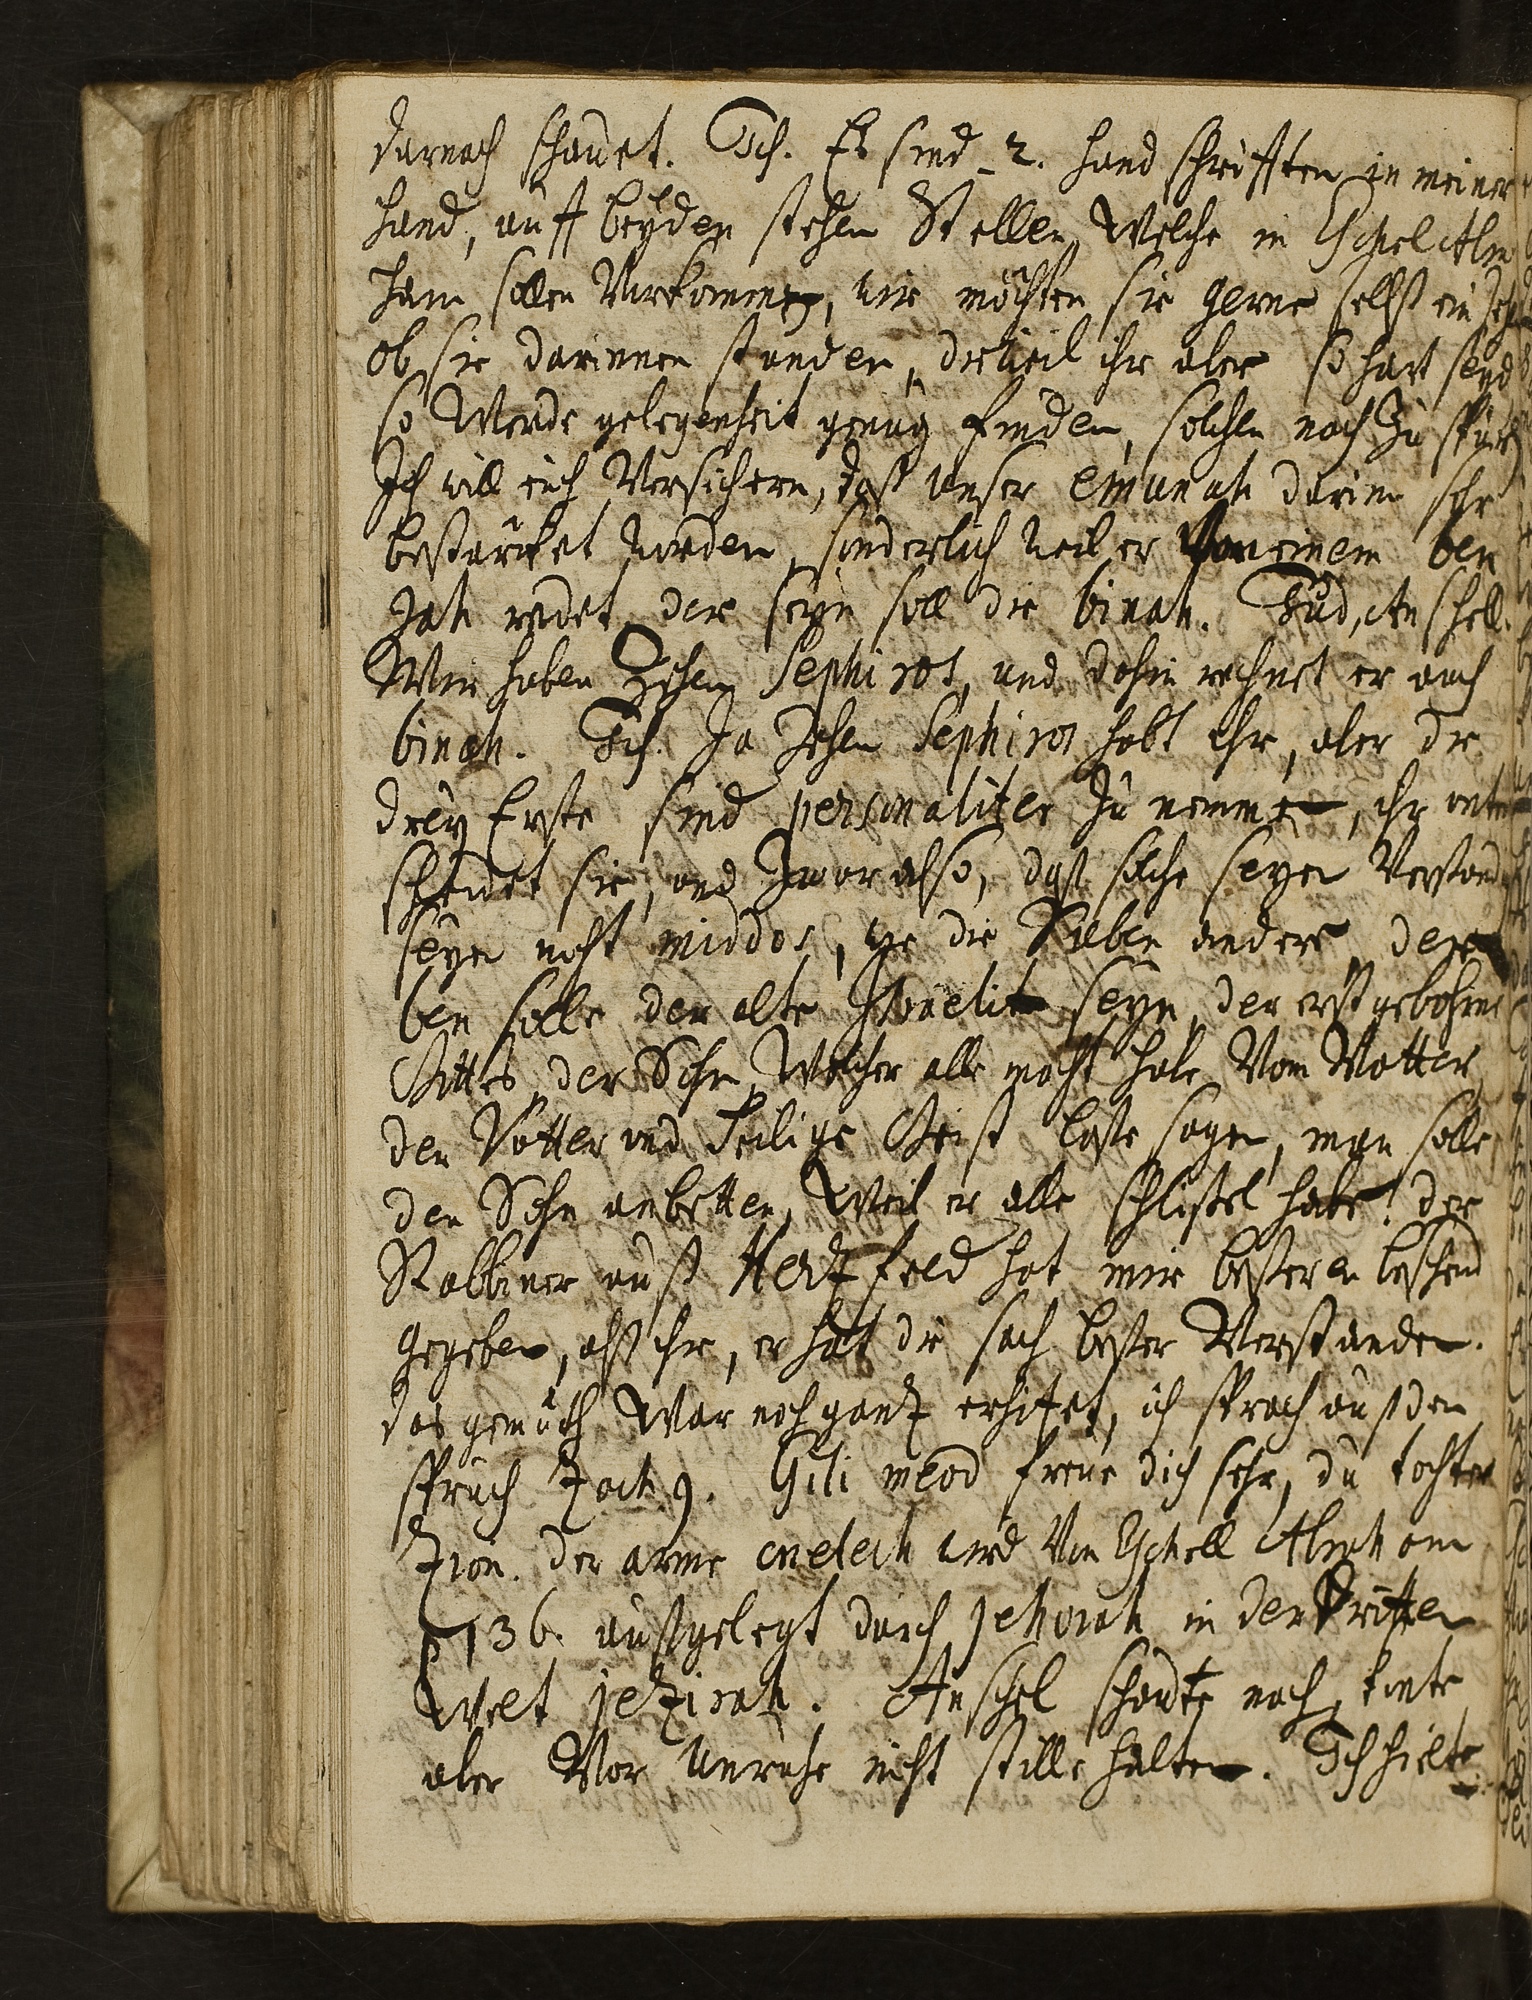 darnach schauet. Ich. Es sind 2. hand schrifften in meiner
hand, auff beyden stehen Stellen, Welche in Eschel Abra
ham sollen Vorkommen, wir möchten sie gerne selbst ein sehen
ob sie darinnen stunden, dieweil ihr aber so hart seyd
so Werde gelegenheit genug finden, solchen nach Zu spüren
Ich will euch Versichern, daß unser emunah darin sehr
bestärcket worden, sonderlich weil er Von einem ben
Jah redet, der seyn soll die binah. Jud, Anschell.
Wir haben Zehen Sephiros, und dahin rechnet er auch
binah. Ich. Ja Zehen Sephiros habt Ihr, aber die
drey Erste sind personaliter Zu nemmen, ihr unter
scheidet sie, und Zwar also, daß solche seyen Verstand
seyen nicht middos, wie die Sieben andere, der
ben solle der alte Israelit seyn, der erstgebohrne
Gottes, der Sohn, Welcher alle macht habe Vom Vatter,
der Vatter und Heilige Geist lasse sagen, man solle
den Sohn anbetten, Weil er alle schlissel habe! der
Rabbiner auß Hertzfeld hat mir bessern bescheid
gegeben, alß ihr, er hat die sach besser Verstanden.
das gemüth War noch gantz erhitzet, ich sprach auß den
spruch Zach. 9. Gili meod freue dich sehr, du tochter
Zion. der arme melech wird Von Eschell Abraham
p 136. außgelegt durch jehovah in der Dritten
Welt jezirah. Anschel schaute nach, konte
aber Vor Unruhe nicht stille halten. Ich hielte